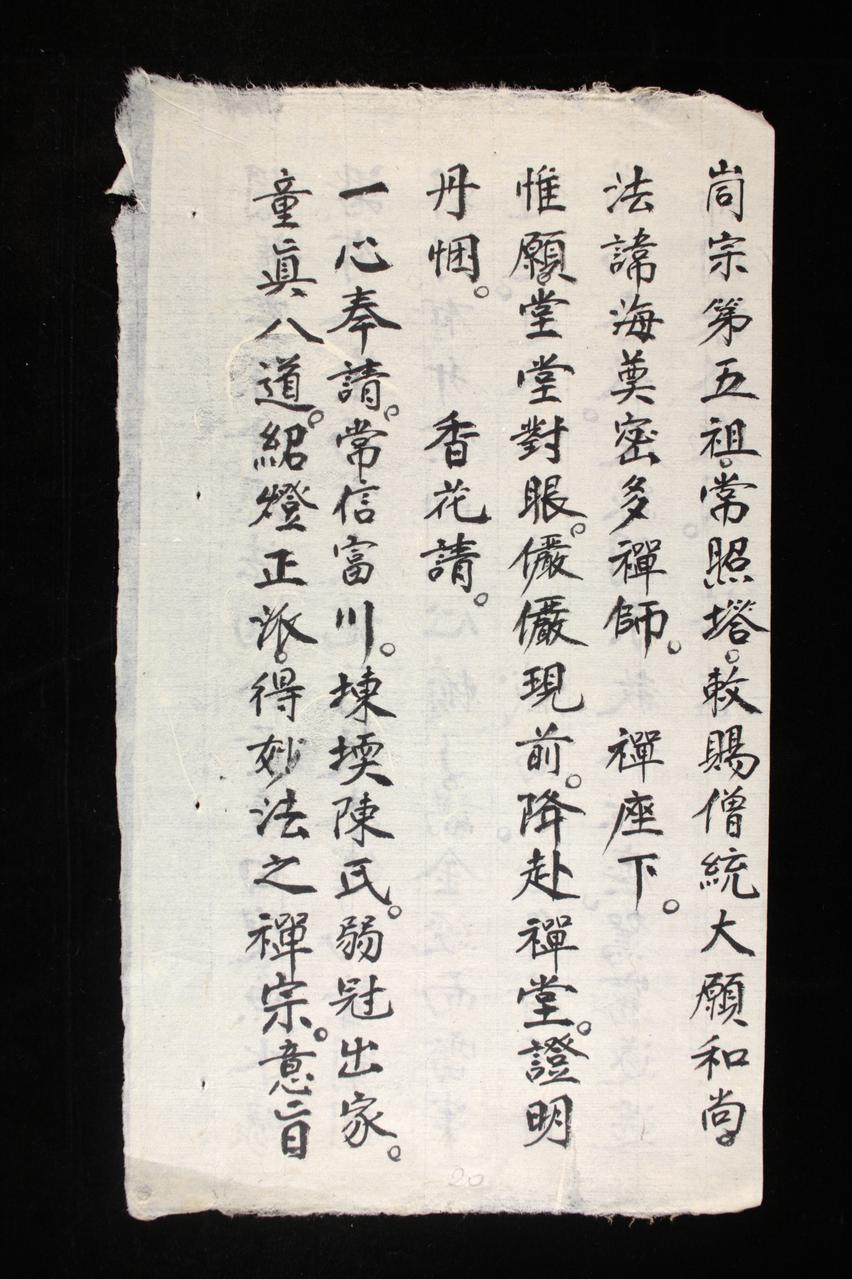 峝宗第五祖。常照塔。敕賜僧統大願和尚。
法諱海奠密多禪師。　禪座下。
惟願。堂堂對眼。儼儼現前。降赴禪堂。證明
丹悃。　香花請。
一心奉請。常信富川。㙂堧陳氏。弱冠出家。
童眞入道。紹燈正派。得妙法之禪宗。意旨
20